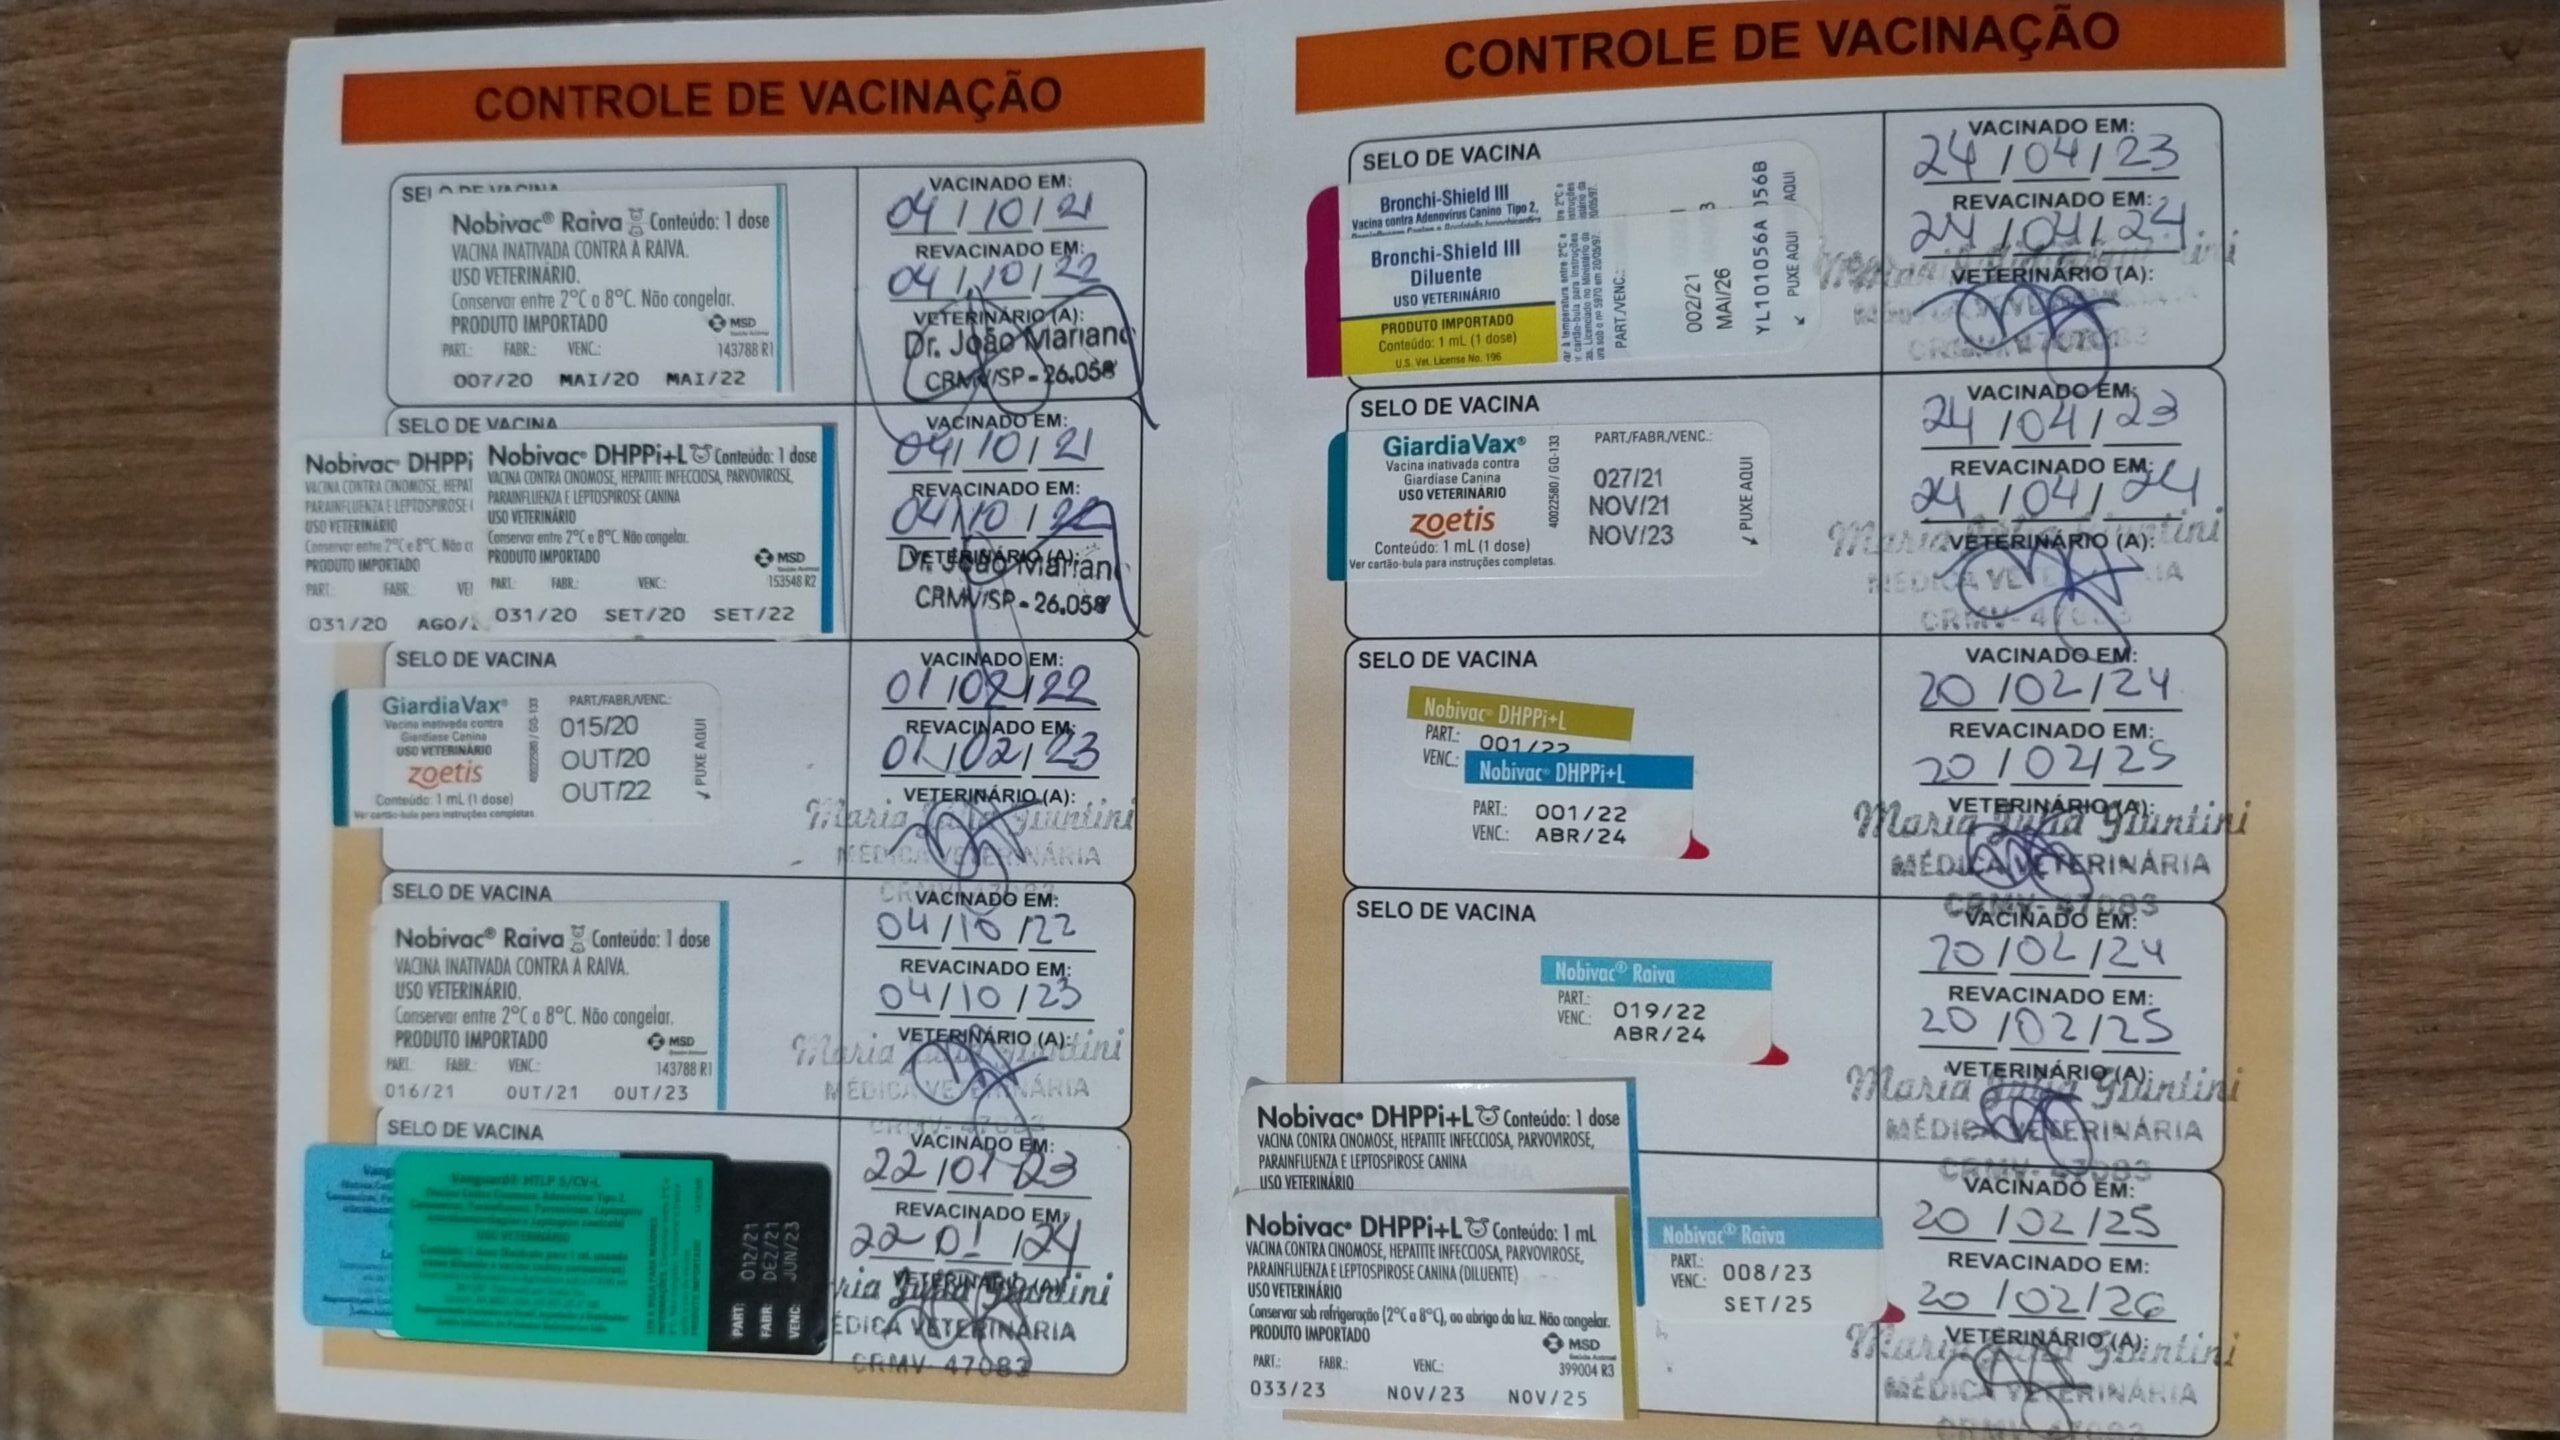 CONTROLE DE VACINAÇÃO
SELO DE VACINA
Nobivac® Raiva Conteúdo: 1 dose
VACINA INATIVADA CONTRA A RAIVA.
USO VETERINÁRIO.
Conservar entre 2°C a 8°C. Não congelar.
PRODUTO IMPORTADO
MSD
PART.: FABR.: VENC.: 143788 R1
007/20 MAI/20 MAI/22
VACINADO EM:
04/10/21
REVACINADO EM:
04/10/22
VETERINÁRIO (A):
Dr. João Mariano
CRMV/SP - 26.058
SELO DE VACINA
Nobivac® DHPPi
VACINA CONTRA CINOMOSE, HEPAT
PARAINFLUENZA E LEPTOSPIROSE
USO VETERINÁRIO
Conservar entre 2°C e 8°C. Não
PRODUTO IMPORTADO
PART.: FABR.:
031/20 AGO/
Nobivac® DHPPi+L Conteúdo: 1 dose
VACINA CONTRA CINOMOSE, HEPATITE INFECCIOSA, PARVOVIROSE,
PARAINFLUENZA E LEPTOSPIROSE CANINA
USO VETERINÁRIO
Conservar entre 2°C e 8°C. Não congelar.
PRODUTO IMPORTADO
MSD
PART.: FABR.: VENC.: 153548 R2
031/20 SET/20 SET/22
VACINADO EM:
04/10/21
REVACINADO EM:
04/10/22
VETERINÁRIO (A):
Dr. João Mariano
CRMV/SP - 26.058
SELO DE VACINA
GiardiaVax®
Vacina inativada contra
Giardíase Canina
USO VETERINÁRIO
zoetis
Conteúdo: 1 mL (1 dose)
Ver cartão-bula para instruções completas.
40022580 / GO-133
PART./FABR./VENC.:
015/20
OUT/20
OUT/22
PUXE AQUI
VACINADO EM:
01/02/22
REVACINADO EM:
01/02/23
VETERINÁRIO (A):
Maria Julia Giuntini
MÉDICA VETERINÁRIA
CRMV- 47083
SELO DE VACINA
Nobivac® Raiva Conteúdo: 1 dose
VACINA INATIVADA CONTRA A RAIVA.
USO VETERINÁRIO.
Conservar entre 2°C a 8°C. Não congelar.
PRODUTO IMPORTADO
MSD
PART.: FABR.: VENC.: 143788 R1
016/21 OUT/21 OUT/23
VACINADO EM:
04/10/22
REVACINADO EM:
04/10/23
VETERINÁRIO (A):
Maria Julia Giuntini
MÉDICA VETERINÁRIA
SELO DE VACINA
Vanguard® HTLP 5/CV-L
USO VETERINÁRIO
PART: 012/21
FABR: DEZ/21
VENC: JUN/23
VACINADO EM:
22/01/23
REVACINADO EM:
22/01/24
VETERINÁRIO (A):
ria Julia Giuntini
ÉDICA VETERINÁRIA
CRMV- 47083
CONTROLE DE VACINAÇÃO
SELO DE VACINA
Bronchi-Shield III
Vacina contra Adenovírus Canino Tipo 2,
Bronchi-Shield III
Diluente
USO VETERINÁRIO
PRODUTO IMPORTADO
Conteúdo: 1 mL (1 dose)
U.S. Vet. License No. 196
PART./VENC.:
002/21
MAI/26
YL101056A
J56B
PUXE AQUI
AQUI
VACINADO EM:
24/04/23
REVACINADO EM:
24/04/24
VETERINÁRIO (A):
SELO DE VACINA
GiardiaVax®
Vacina inativada contra
Giardíase Canina
USO VETERINÁRIO
zoetis
Conteúdo: 1 mL (1 dose)
Ver cartão-bula para instruções completas.
40022580 / GO-133
PART./FABR./VENC.:
027/21
NOV/21
NOV/23
PUXE AQUI
VACINADO EM:
24/04/23
REVACINADO EM:
24/04/24
VETERINÁRIO (A):
Maria Julia Giuntini
MÉDICA VETERINÁRIA
CRMV- 47083
SELO DE VACINA
Nobivac® DHPPi+L
PART.: 001/22
VENC.:
Nobivac® DHPPi+L
PART.: 001/22
VENC.: ABR/24
VACINADO EM:
20/02/24
REVACINADO EM:
20/02/25
VETERINÁRIO (A):
Maria Julia Giuntini
MÉDICA VETERINÁRIA
CRMV- 47083
SELO DE VACINA
Nobivac® Raiva
PART.: 019/22
VENC.: ABR/24
VACINADO EM:
20/02/24
REVACINADO EM:
20/02/25
VETERINÁRIO (A):
Maria Julia Giuntini
MÉDICA VETERINÁRIA
CRMV- 47083
Nobivac® DHPPi+L Conteúdo: 1 dose
VACINA CONTRA CINOMOSE, HEPATITE INFECCIOSA, PARVOVIROSE,
PARAINFLUENZA E LEPTOSPIROSE CANINA
USO VETERINÁRIO
Nobivac® DHPPi+L Conteúdo: 1 mL
VACINA CONTRA CINOMOSE, HEPATITE INFECCIOSA, PARVOVIROSE,
PARAINFLUENZA E LEPTOSPIROSE CANINA (DILUENTE)
USO VETERINÁRIO
Conservar sob refrigeração (2°C a 8°C), ao abrigo da luz. Não congelar.
PRODUTO IMPORTADO
MSD
PART.: FABR.: VENC.: 399004 R3
033/23 NOV/23 NOV/25
Nobivac® Raiva
PART.: 008/23
VENC.: SET/25
VACINADO EM:
20/02/25
REVACINADO EM:
20/02/26
VETERINÁRIO (A):
Maria Julia Giuntini
MÉDICA VETERINÁRIA
CRMV- 47083